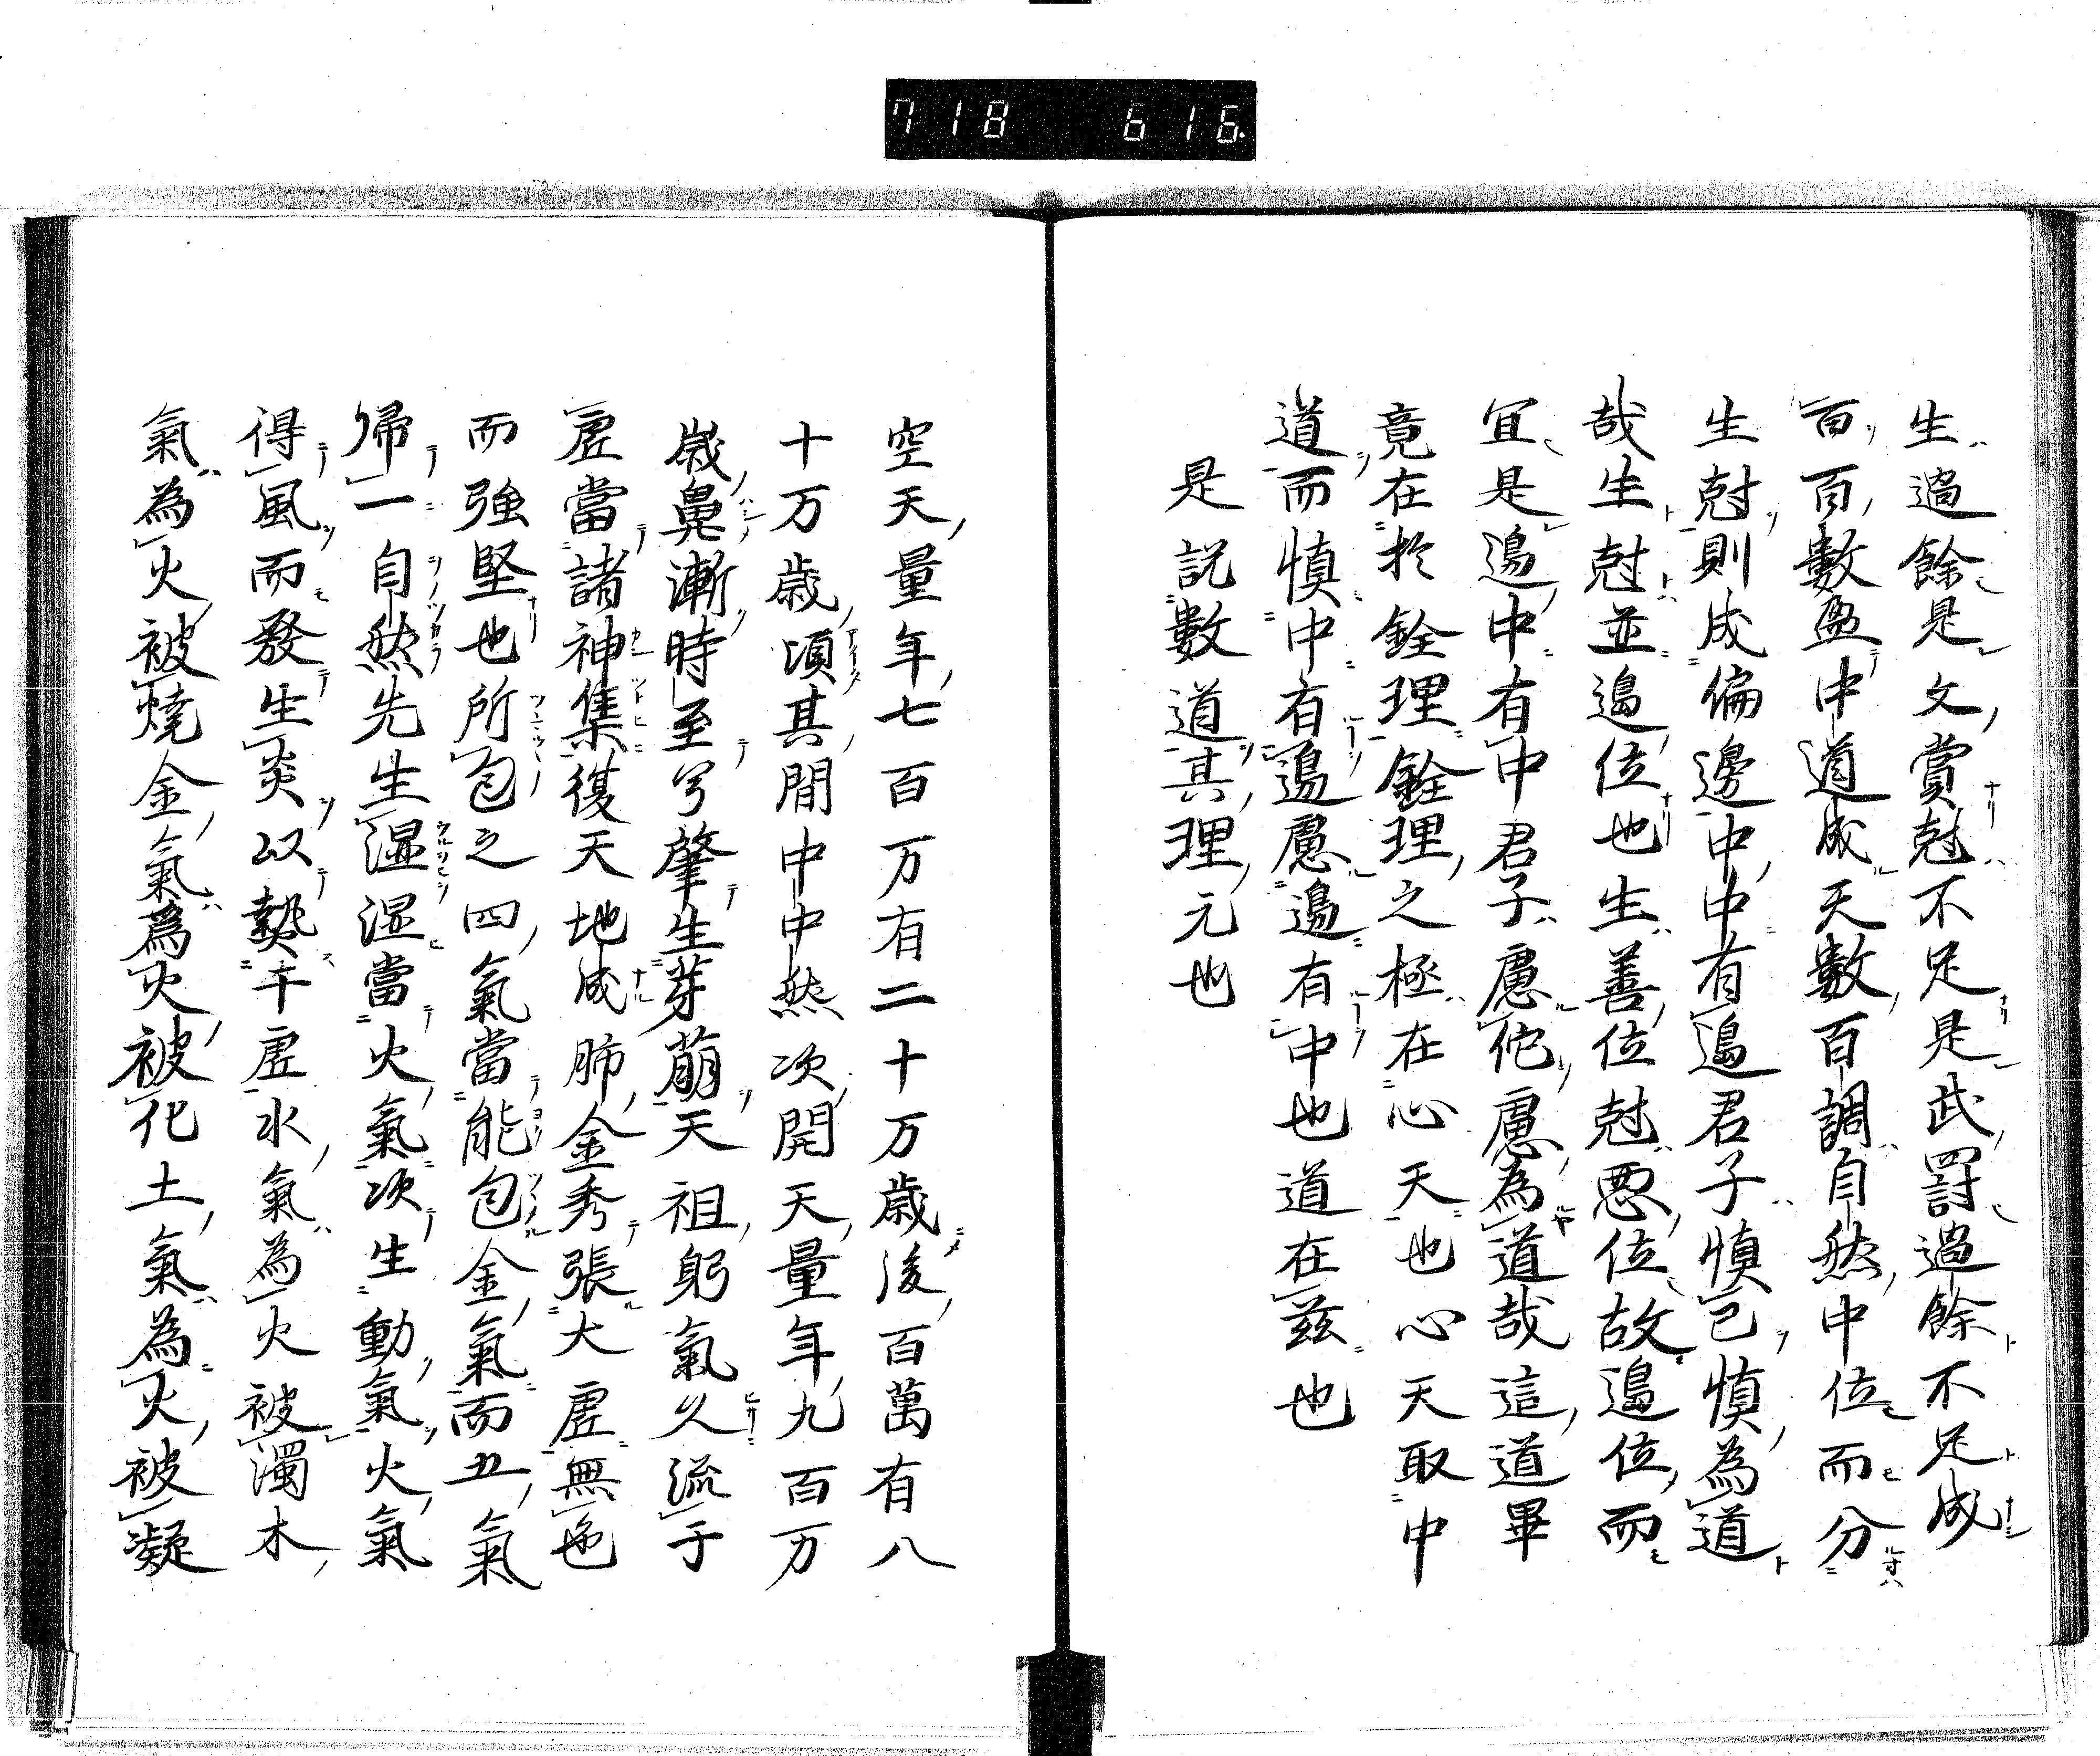 718 616.
生過餘是文賞尅不足是武罰過餘不足成
百百數盈中道成天數百調自然中位而分
生尅則成偏邊中中有邊君子慎己慎為道
哉生尅並邊位也生善位尅悪位故邊位而
宜是邊中有中君子慮他慮為道哉這道畢
竟在於銓理銓理之極在心天也心天取中
道而慎中有邊慮邊有中也道在茲也
是説數道其理元也
空天量年七百万有二十万歳後百萬有八
十万歳頃其間中中然次開天量年九百万
歳鼻漸時至兮肇生芽萠天祖躬氣久流于
虚當諸神集復天地成肺金秀張大虚無色
而強堅也所包之四氣當能包金氣而五氣
帰一自然先生湿湿當火氣次生動氣火氣
得風而發生炎以爇干虚水氣為火被濁木
氣為火被焼金氣為火被化土氣為火被凝